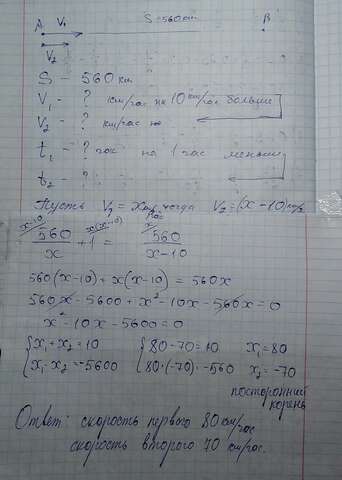 A V₁ S=560км B
V₂
S - 560 км
V₁ - ? км/час на 10 км/час больше
V₂ - ? км/час
t₁ - ? час на 1 час меньше
t₂ - ?
Пусть V₁ = x км/час тогда V₂ = (x-10) км/ч
x-10 x(x-10) x
560/x + 1 = 560/(x-10)
560(x-10) + x(x-10) = 560x
560x - 5600 + x² - 10x - 560x = 0
x² - 10x - 5600 = 0
{x₁ + x₂ = 10 {80 - 70 = 10 x₁ = 80
x₁ · x₂ = -5600 80·(-70) = -560 x₂ = -70
посторонний
корень
Ответ: скорость первого 80 км/час
скорость второго 70 км/час.